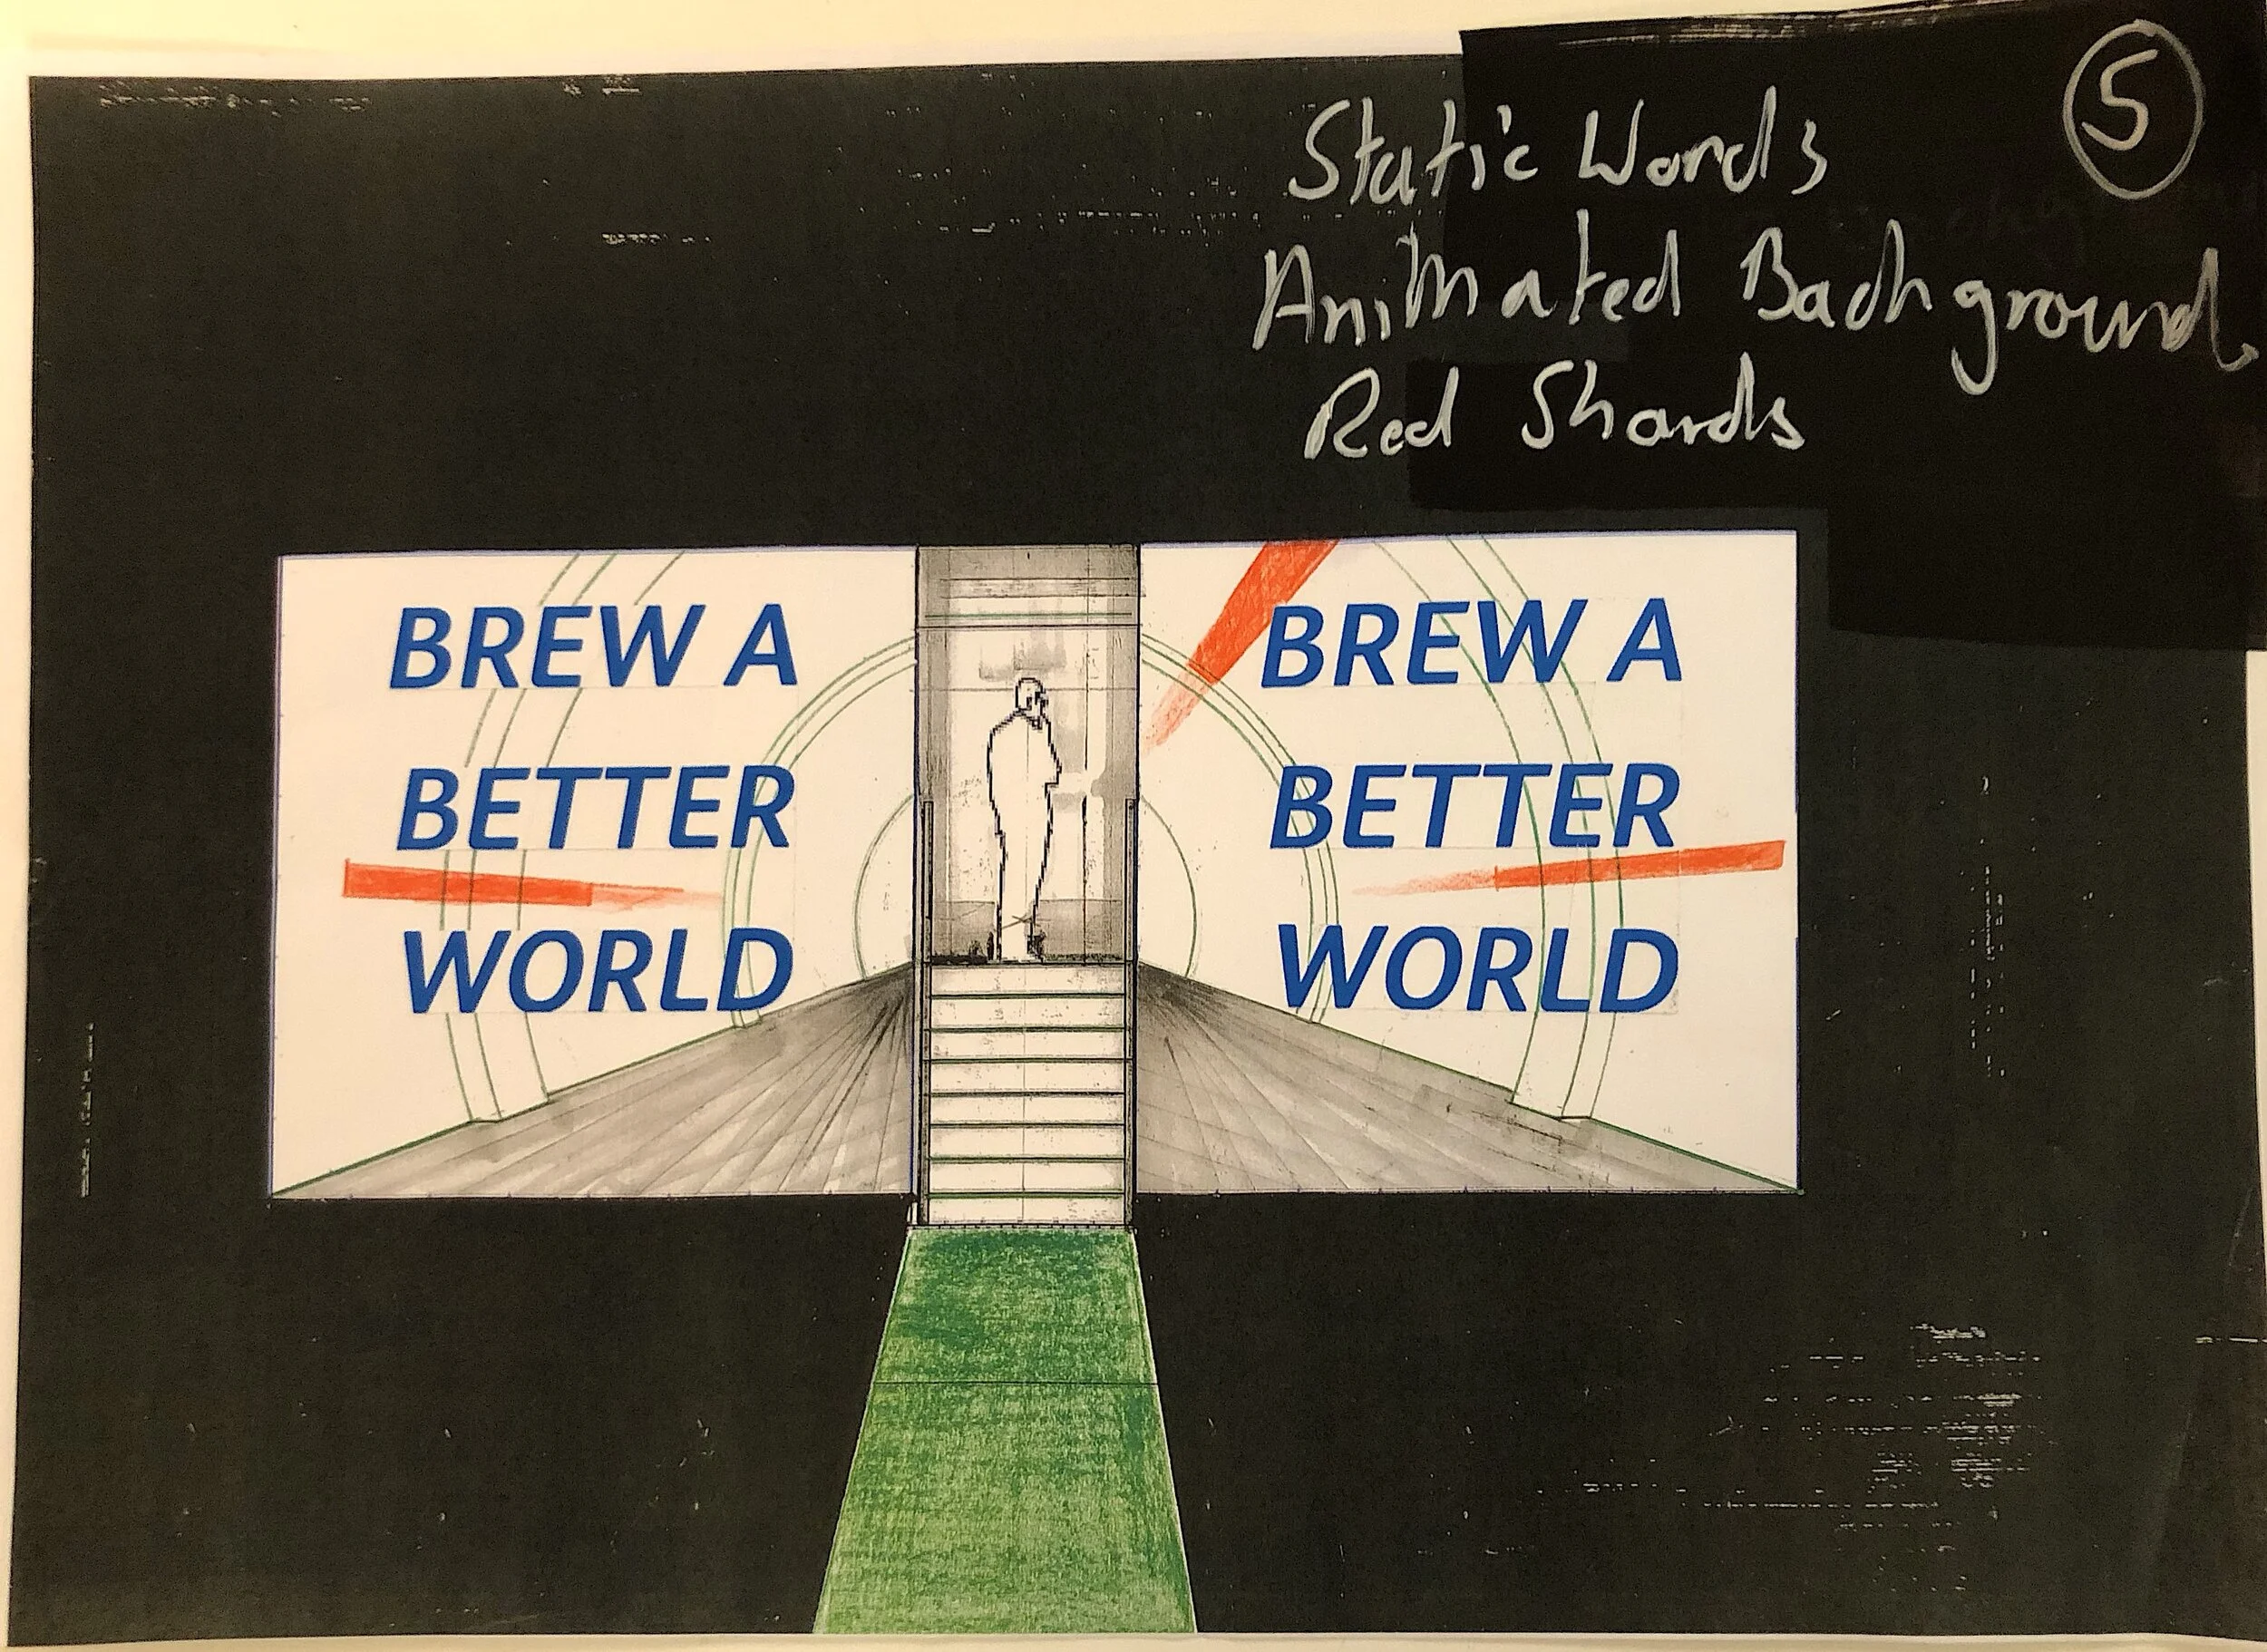 5
Static Words
Animated Background
Red Shards
BREW A
BETTER
WORLD
BREW A
BETTER
WORLD